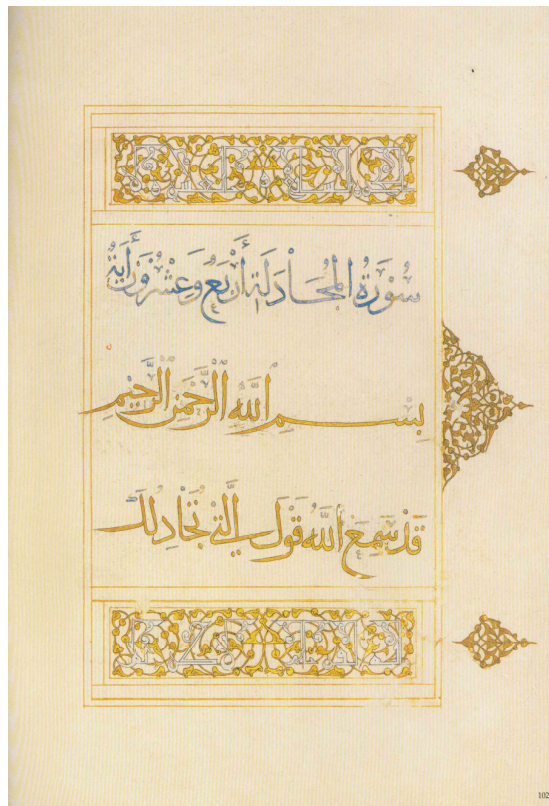 سُوْرَةُ الْمُجَادَلَةِ أَرْبَعٌ وَعِشْرُوْنَ أَيَةً
بِسْمِ اللَّهِ الرَّحْمَنِ الرَّحِيْمِ
قَدْ سَمِعَ اللَّهُ قَوْلَ الَّتِي تُجَادِلُكَ
102